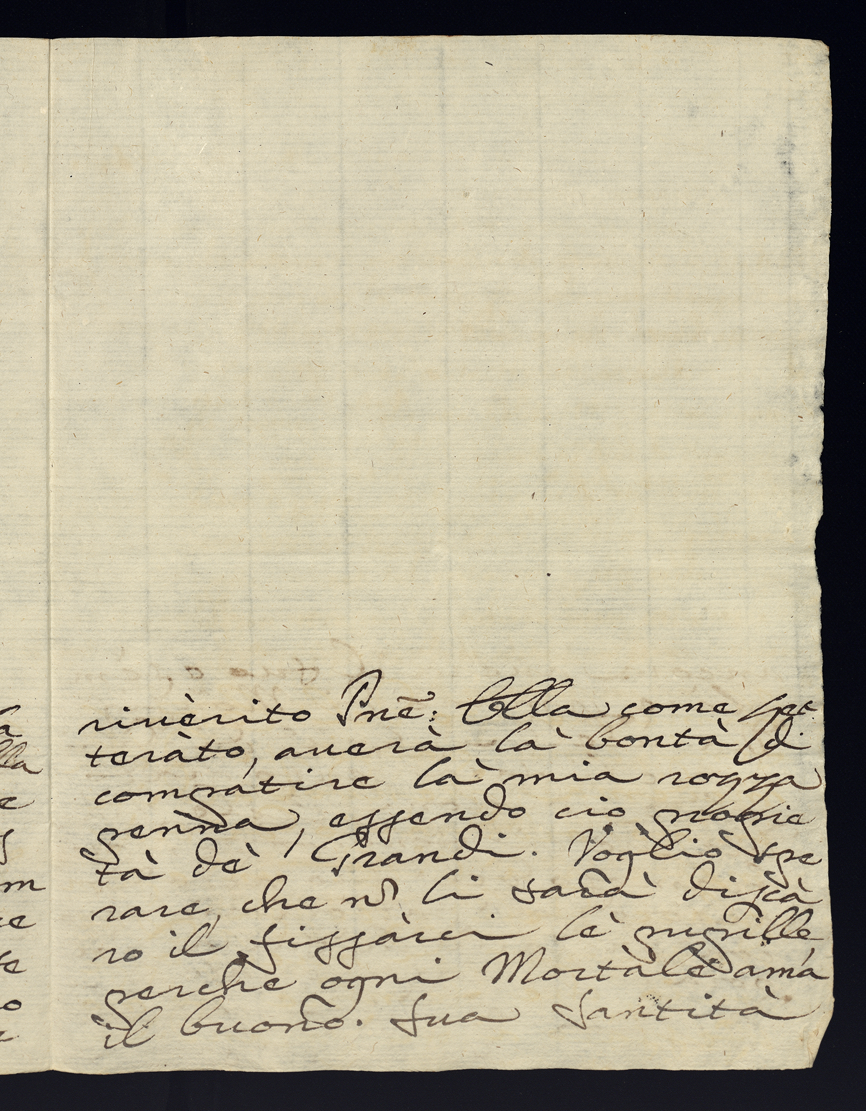 rivèrito Pnẽ: Ella come let:
terato, averà là bontà di
compatire là mia rozza
penna, essendo cio proprie
tà dè Grandi. Voglio spe
rare, che nõ li sarà discà
ro il fissàrci lè pupille,
perche ogni Mortalè ama
il buono. Sua Santità